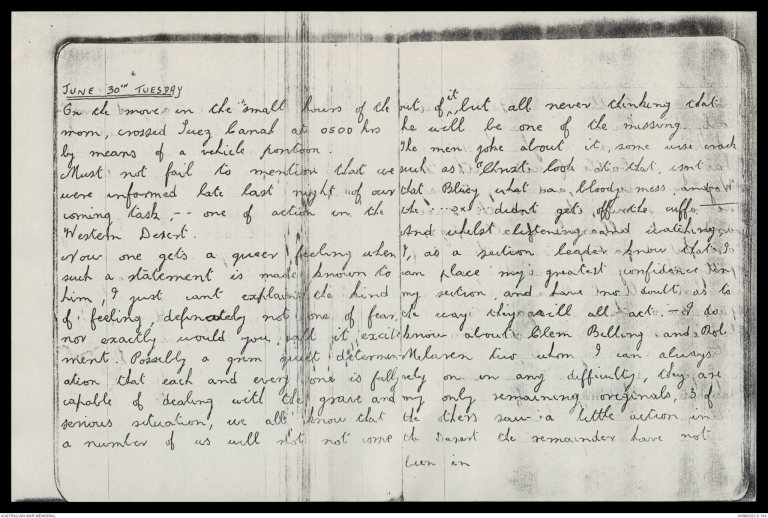 JUNE 30TH TUESDAY
On the move in the small hours of the
morn, crossed Suez Canal at 0500 hrs
by means of a vehicle pontoon.
Must not fail to mention that we
were informed late last night of our
coming task, -- one of action in the
Western Desert.
Now one gets a queer feeling when
such a statement is made known to
him, I just cant explain the kind
of feeling, definately not one of fear,
nor exactly would you call it excite
ment. Possibly a grim quiet determin
ation that each and every one is fully
capable of dealing with the grave and
serious situation, we all know that
a number of us will not come
out of it, but all never thinking that
he will be one of the missing.
The men joke about it, some wise crack
such as "Christ look at that, isnt
that Bluey what a bloody mess and
the didnt get off the cuffs
And whilst listening and watching
I, as a section leader know that I
can place my greatest confidence in
my section and have no doubt as to
the way they will all act. - I do
know about Clem Billing and Bob
McLaren two whom I can always
rely on in any difficulty, they are
my only remaining originals, 3 of
the others saw a little action in
the Desert the remainder have not
been in
AUSTRALIAN WAR MEMORIAL